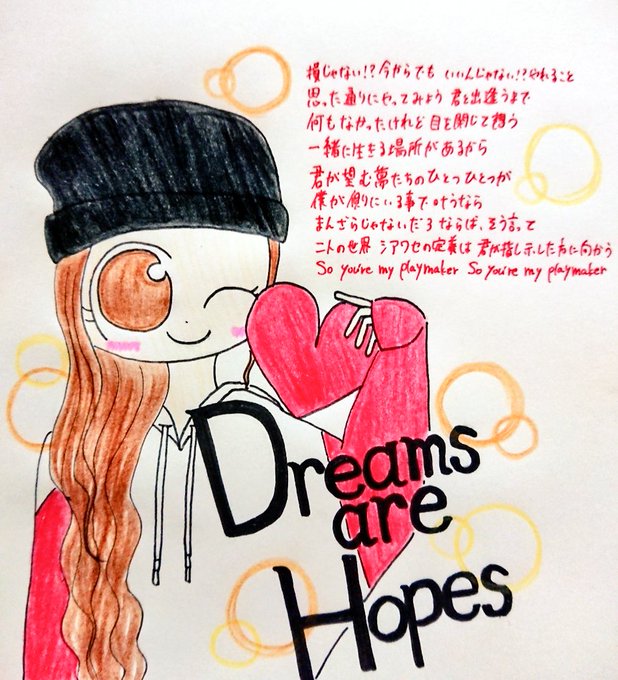 損じゃない!?今からでも いいんじゃない!?やれること
思った通りにやってみよう 君と出逢うまで
何もなかったけれど 目を閉じて想う
一緒に生きる場所があるから
君が望む夢たちのひとつひとつが
僕が側りにいる事で叶うなら
まんざらじゃないだろ ならば、そう言って
二人の世界 シアワセの定義は 君が指し示した方に向かう
So you're my playmaker So you're my playmaker
Dreams
are
Hopes